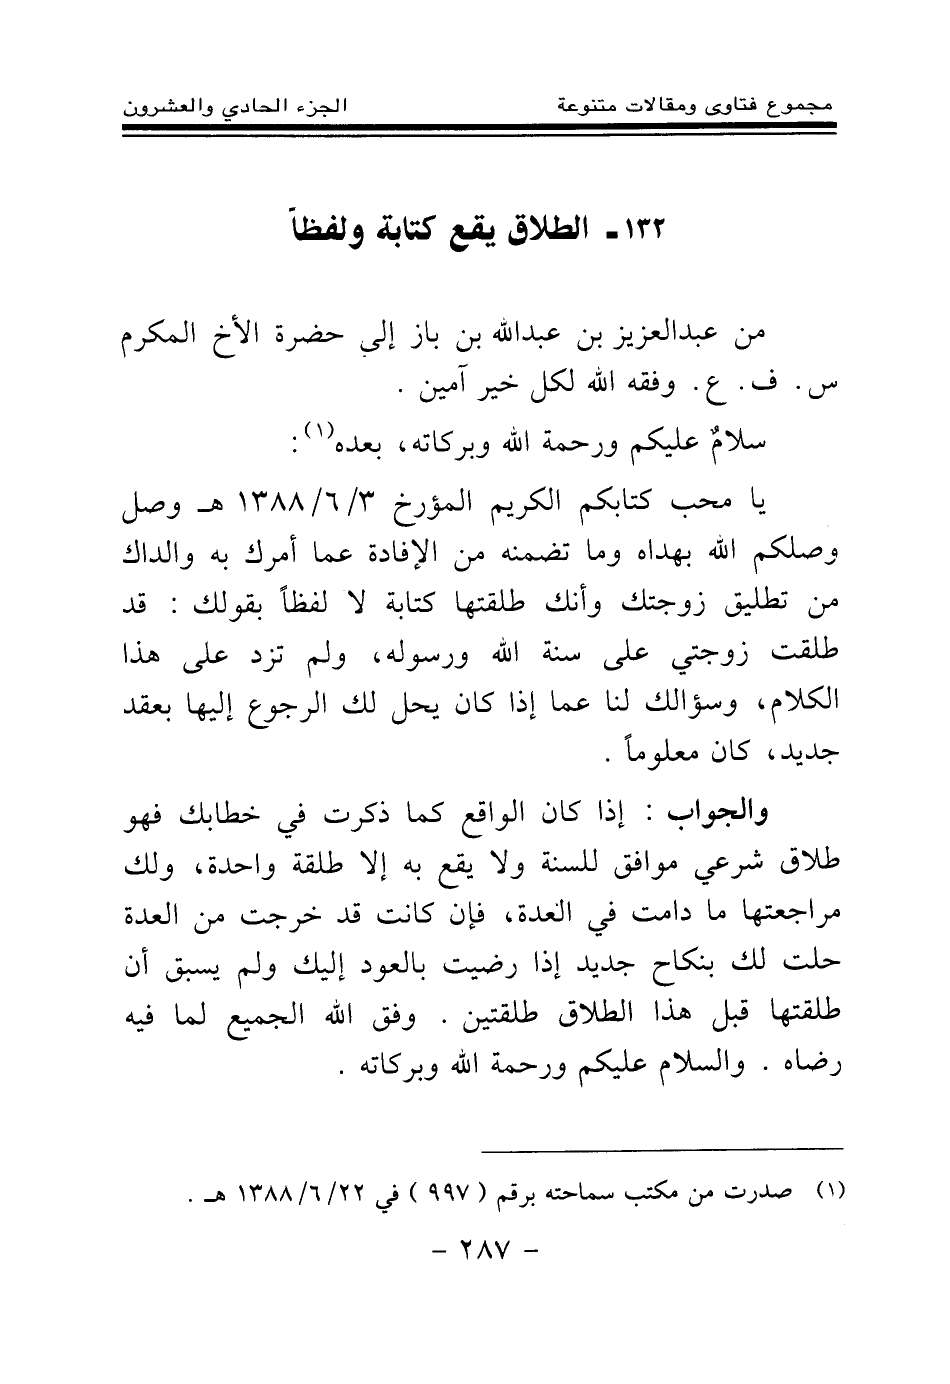 مجموع فتاوى ومقالات متنوعة الجزء الحادي والعشرون
١٣٢ ـ الطلاق يقع كتابة ولفظاً
من عبدالعزيز بن عبدالله بن باز إلى حضرة الأخ المكرم
س. ف. ع. وفقه الله لكل خير آمين .
سلامٌ عليكم ورحمة الله وبركاته، بعده(١):
يا محب كتابكم الكريم المؤرخ ١٣٨٨/٦/٣ هـ وصل
وصلكم الله بهداه وما تضمنه من الإفادة عما أمرك به والداك
من تطليق زوجتك وأنك طلقتها كتابة لا لفظاً بقولك : قد
طلقت زوجتي على سنة الله ورسوله، ولم تزد على هذا
الكلام، وسؤالك لنا عما إذا كان يحل لك الرجوع إليها بعقد
جديد، كان معلوماً .
والجواب : إذا كان الواقع كما ذكرت في خطابك فهو
طلاق شرعي موافق للسنة ولا يقع به إلا طلقة واحدة، ولك
مراجعتها ما دامت في العدة، فإن كانت قد خرجت من العدة
حلت لك بنكاح جديد إذا رضيت بالعود إليك ولم يسبق أن
طلقتها قبل هذا الطلاق طلقتين . وفق الله الجميع لما فيه
رضاه . والسلام عليكم ورحمة الله وبركاته .
(١) صدرت من مكتب سماحته برقم ( ٩٩٧ ) في ١٣٨٨/٦/٢٢ هـ .
- ٢٨٧ -